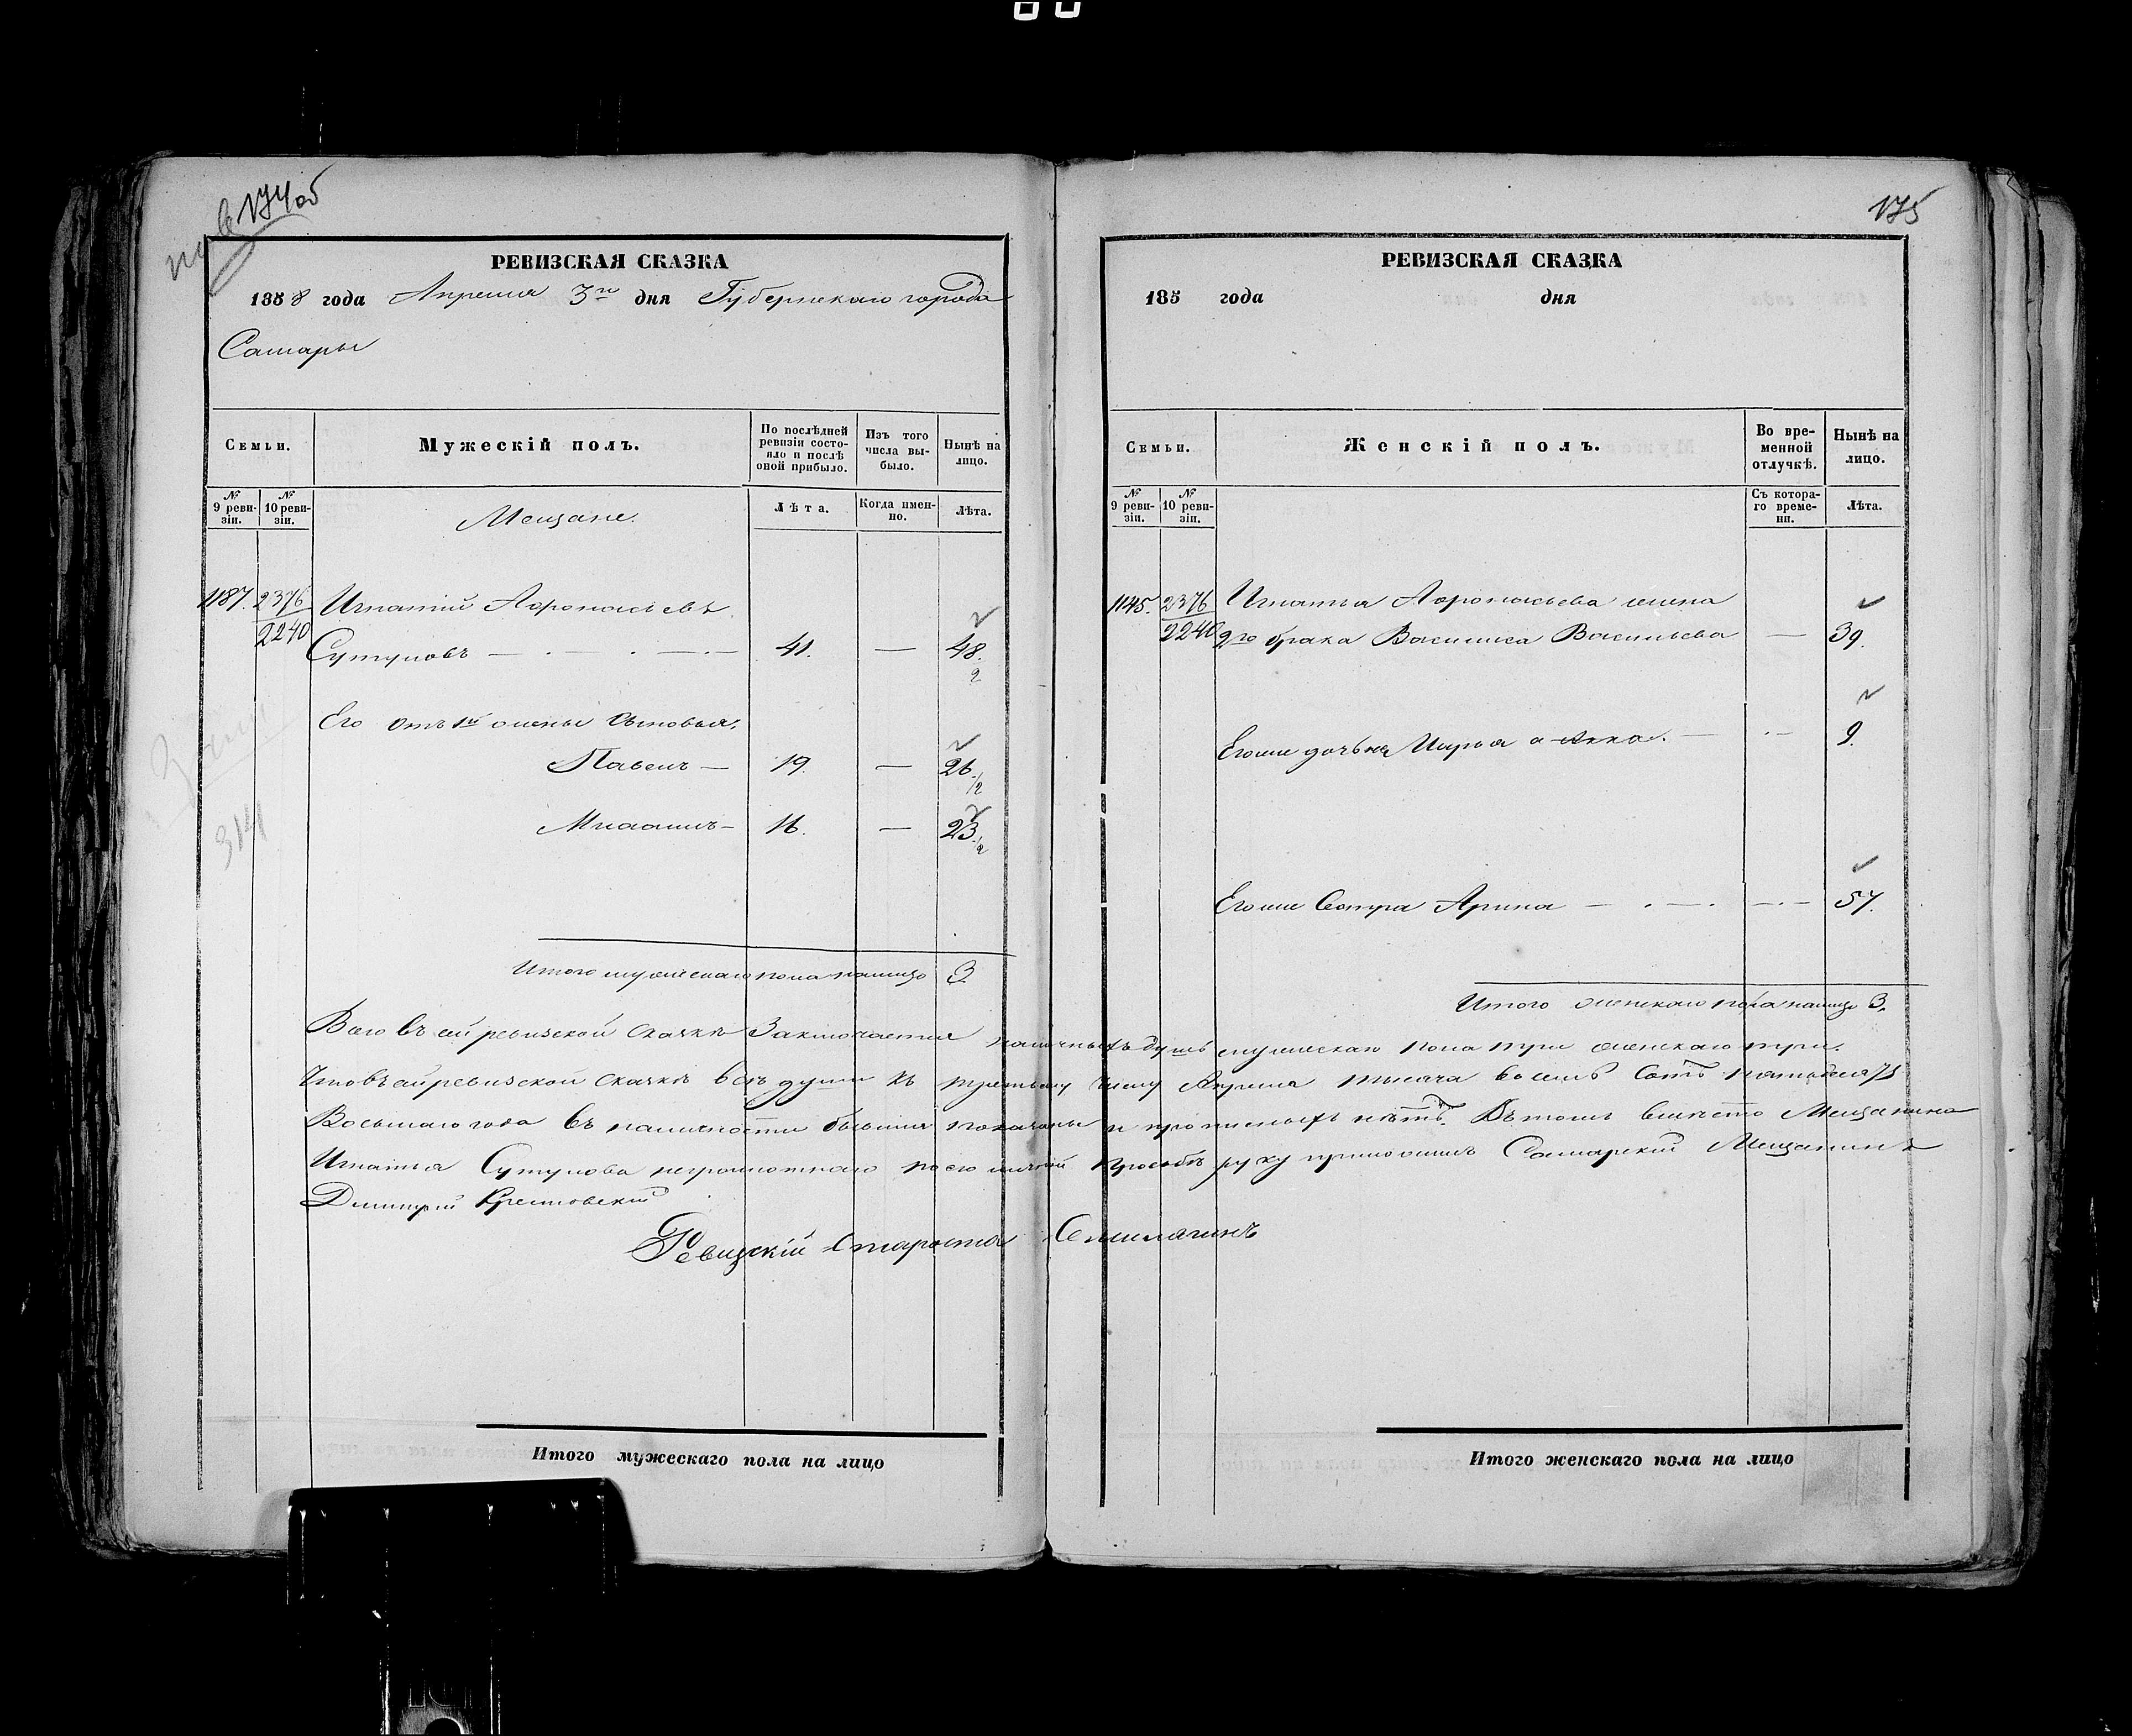 174 об
175
РЕВИЗСКАЯ СКАЗКА
1858 года Апреля 3го дня Губернскаго города
Самары
Семьи.
Мужескій полъ.
По послѣдней ревизіи состояло и послѣ оной прибыло.
Изъ того числа выбыло.
Нынѣ на лицо.
№ 9 ревизіи.
№ 10 ревизіи.
Мещане.
Лѣта.
Когда именно.
Лѣта.
1187. 2376 Игнатій Афонасьевъ
2240 Сутуловъ — 41. — 48.
Его отъ 1й жены сыновья.
Павелъ — 19. — 26.
Михаилъ — 16. — 23.
Итого мужескаго пола налицо 3
РЕВИЗСКАЯ СКАЗКА
185 года дня
Семьи.
Женскій полъ.
Во временной отлучкѣ.
Нынѣ на лицо.
№ 9 ревизіи.
№ 10 ревизіи.
Съ котораго времени.
Лѣта.
1145. 2376 Игнатья Афонасьева жена
2240 2го брака Василиса Васильева — 39.
Егоже дочь Марья а Анна. — 9.
Егоже Сестра Арина — 57.
Итого женскаго пола налицо 3.
Всего въ сей ревизской сказкѣ Заключается наличныхъ душъ мужескаго пола три женскаго три.
Что въ сей ревизской сказкѣ всѣ души къ третьему числу Апреля тысяча восемь сотъ пятьдесятъ
Восьмаго года въ наличности бывшія показаны и прописныхъ нѣтъ. Въ томъ вмѣсто Мещанина
Игнатья Сутулова неграмотнаго по его личной прозьбѣ руку приложилъ Самарскій Мещанинъ
Дмитрій Крестовскій
Ревизскій Староста
Итого мужескаго пола на лицо
Итого женскаго пола на лицо